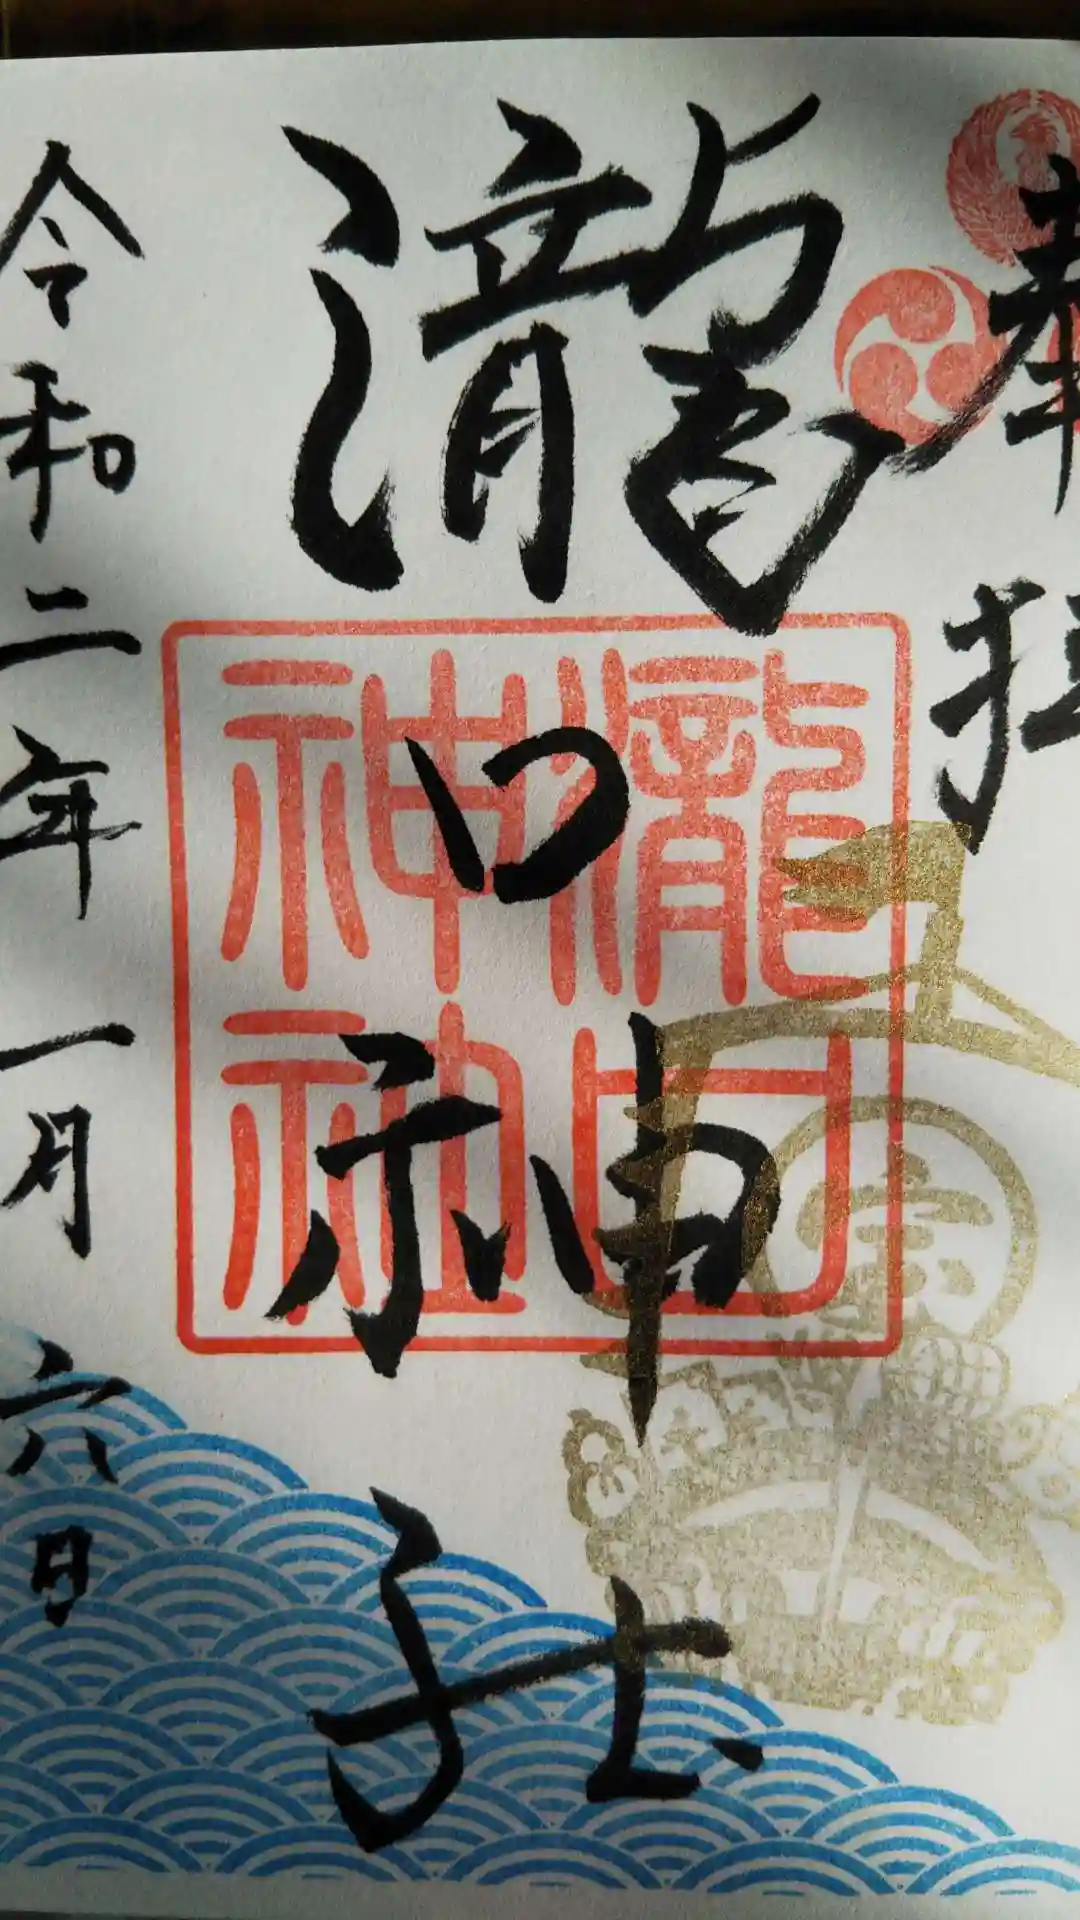 奉拝
瀧口神社
瀧口神社
宝
令和二年一月六日